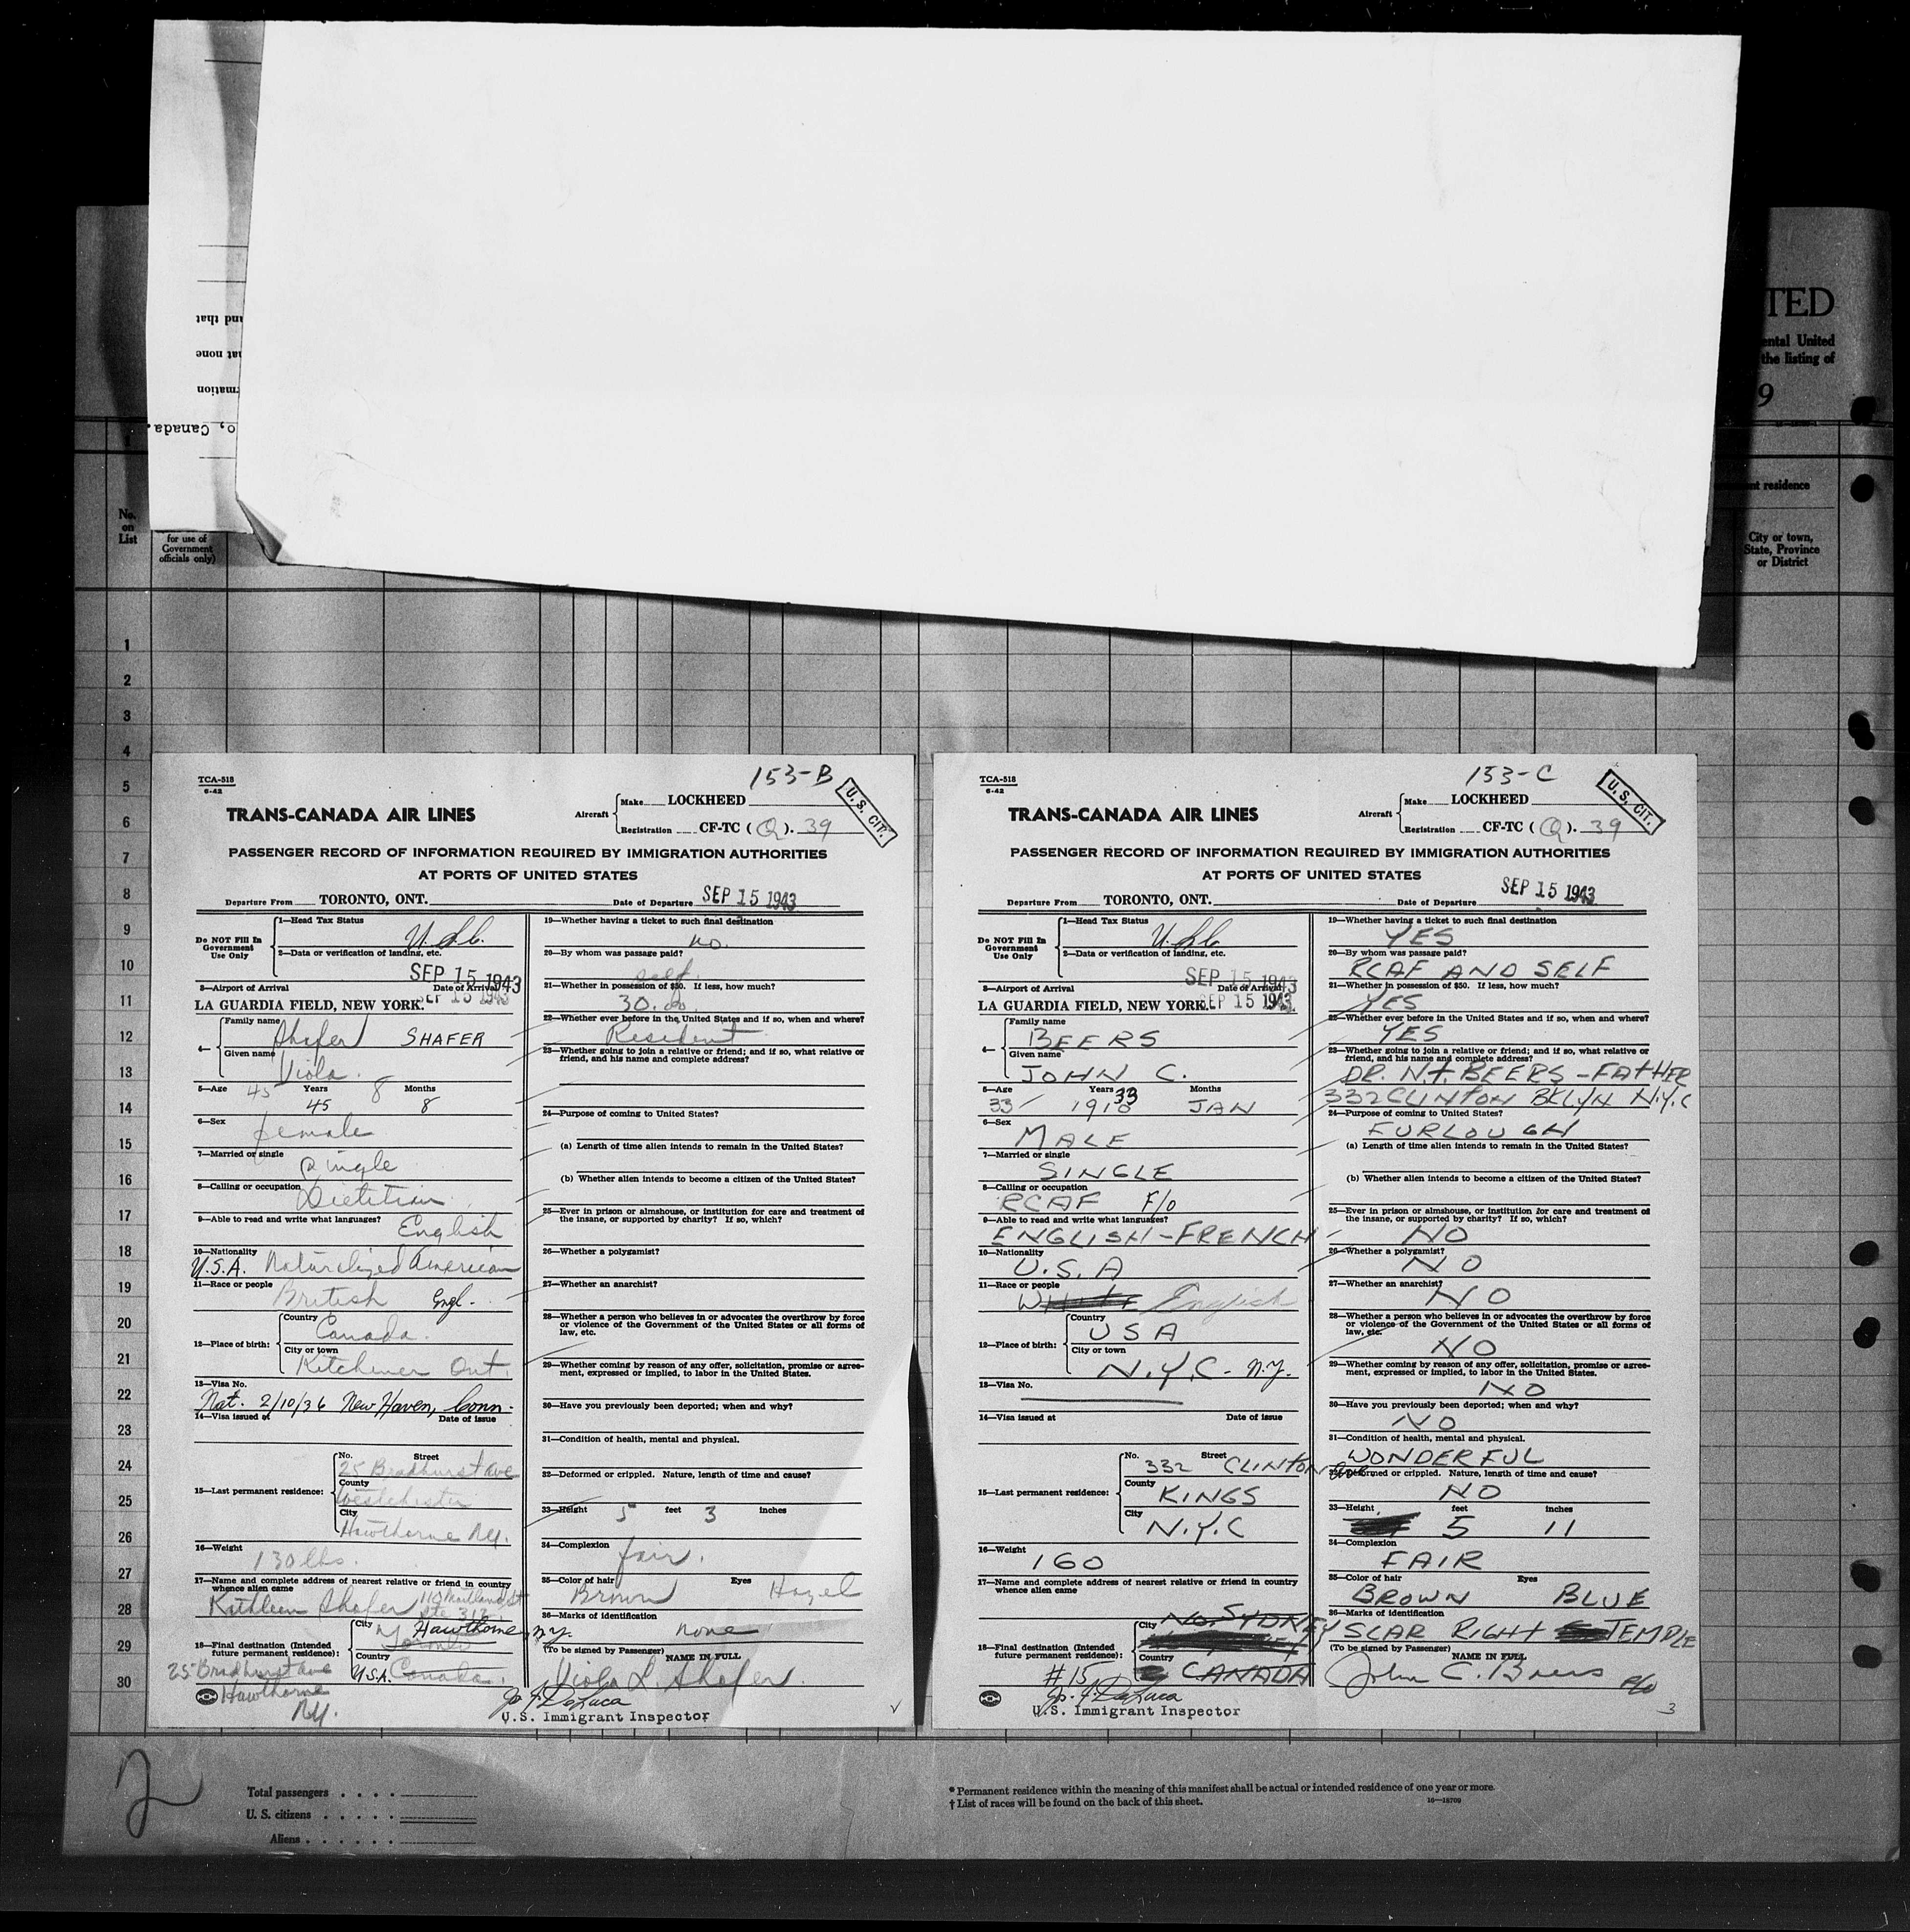 TED
ental United
the listing of
9
and that
at none
rmation
o, Canada.
nt residence
No.
on
List
for use of
Government
officials only)
City or town,
State, Province
or District
1
2
3
4
5
6
7
8
9
10
11
12
13
14
15
16
17
18
19
20
21
22
23
24
25
26
27
28
29
30
153-B
TCA-518
6-42
TRANS-CANADA AIR LINES
Aircraft
Make LOCKHEED
Registration CF-TC (Q). 39
U.S. CIT.
PASSENGER RECORD OF INFORMATION REQUIRED BY IMMIGRATION AUTHORITIES
AT PORTS OF UNITED STATES
Departure From TORONTO, ONT. Date of Departure SEP 15 1943
Do NOT Fill In
Government
Use Only
1—Head Tax Status
2—Data or verification of landing, etc.
SEP 15 1943
3—Airport of Arrival Date of Arrival
LA GUARDIA FIELD, NEW YORK. SEP 15 1943
4— Family name Shafer SHAFER
Given name Viola
5—Age 45 Years 8 Months
45 8
6—Sex female
7—Married or single single
8—Calling or occupation Dietitian
9—Able to read and write what languages? English
10—Nationality
U.S.A. Naturalized American
11—Race or people British Engl.
12—Place of birth: Country Canada.
City or town Kitchener Ont.
13—Visa No.
Nat. 2/10/36 New Haven, Conn.
14—Visa issued at Date of issue
15—Last permanent residence:
No. Street
25 Bradhurst Ave
County
Westchester
City
Hawthorne N.Y.
16—Weight 130 lbs.
17—Name and complete address of nearest relative or friend in country
whence alien came
Kathleen Shafer 110 Maitland St
18—Final destination (Intended
future permanent residence):
City Hawthorne, N.Y.
Toronto
Country U.S.A. Canada.
25 Bradhurst Ave
Hawthorne
N.Y.
19—Whether having a ticket to such final destination
no.
20—By whom was passage paid?
self.
21—Whether in possession of $50. If less, how much?
30.00
22—Whether ever before in the United States and if so, when and where?
Resident
23—Whether going to join a relative or friend; and if so, what relative or
friend, and his name and complete address?
24—Purpose of coming to United States?
(a) Length of time alien intends to remain in the United States?
(b) Whether alien intends to become a citizen of the United States?
25—Ever in prison or almshouse, or institution for care and treatment of
the insane, or supported by charity? If so, which?
26—Whether a polygamist?
27—Whether an anarchist?
28—Whether a person who believes in or advocates the overthrow by force
or violence of the Government of the United States or all forms of
law, etc.
29—Whether coming by reason of any offer, solicitation, promise or agree-
ment, expressed or implied, to labor in the United States.
30—Have you previously been deported; when and why?
31—Condition of health, mental and physical.
32—Deformed or crippled. Nature, length of time and cause?
33—Height 5 feet 3 inches
34—Complexion fair.
35—Color of hair Eyes
Brown Hazel
36—Marks of identification
none
(To be signed by Passenger) NAME IN FULL
Viola L. Shafer.
Jos. J. DeLuca
U.S. Immigrant Inspector
153-C
TCA-518
6-42
TRANS-CANADA AIR LINES
Aircraft
Make LOCKHEED
Registration CF-TC (Q). 39
U.S. CIT.
PASSENGER RECORD OF INFORMATION REQUIRED BY IMMIGRATION AUTHORITIES
AT PORTS OF UNITED STATES
Departure From TORONTO, ONT. Date of Departure SEP 15 1943
Do NOT Fill In
Government
Use Only
1—Head Tax Status
2—Data or verification of landing, etc.
SEP 15 1943
3—Airport of Arrival Date of Arrival
LA GUARDIA FIELD, NEW YORK. SEP 15 1943
4— Family name
BEERS
Given name
JOHN C.
5—Age Years 33 Months
33 1910 JAN
6—Sex MALE
7—Married or single
SINGLE
8—Calling or occupation
RCAF F/O
9—Able to read and write what languages?
ENGLISH-FRENCH
10—Nationality
U.S.A
11—Race or people
English
12—Place of birth: Country
USA
City or town
N.Y.C- N.Y.
13—Visa No.
14—Visa issued at Date of issue
15—Last permanent residence:
No. Street
332 CLINTON Ave
County
KINGS
City
N.Y.C
16—Weight 160
17—Name and complete address of nearest relative or friend in country
whence alien came
18—Final destination (Intended
future permanent residence):
City NO. SYDNEY
Country
#15 CANADA
19—Whether having a ticket to such final destination
YES
20—By whom was passage paid?
RCAF AND SELF
21—Whether in possession of $50. If less, how much?
YES
22—Whether ever before in the United States and if so, when and where?
YES
23—Whether going to join a relative or friend; and if so, what relative or
friend, and his name and complete address?
DR. N.T. BEERS-FATHER
332 CLINTON BKLYN N.Y.C
24—Purpose of coming to United States?
FURLOUGH
(a) Length of time alien intends to remain in the United States?
(b) Whether alien intends to become a citizen of the United States?
25—Ever in prison or almshouse, or institution for care and treatment of
the insane, or supported by charity? If so, which?
NO
26—Whether a polygamist?
NO
27—Whether an anarchist?
NO
28—Whether a person who believes in or advocates the overthrow by force
or violence of the Government of the United States or all forms of
law, etc.
NO
29—Whether coming by reason of any offer, solicitation, promise or agree-
ment, expressed or implied, to labor in the United States.
NO
30—Have you previously been deported; when and why?
NO
31—Condition of health, mental and physical.
WONDERFUL
32—Deformed or crippled. Nature, length of time and cause?
NO
33—Height feet inches
5 11
34—Complexion
FAIR
35—Color of hair Eyes
BROWN BLUE
36—Marks of identification
SCAR RIGHT TEMPLE
(To be signed by Passenger) NAME IN FULL
John C. Beers F/O
Jos. J. DeLuca
U.S. Immigrant Inspector
3
2
Total passengers . . . .
U. S. citizens . . . . .
Aliens . . . . . .
* Permanent residence within the meaning of this manifest shall be actual or intended residence of one year or more.
† List of races will be found on the back of this sheet.
16—18709